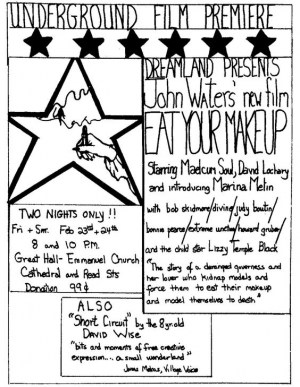 UNDERGROUND FILM PREMIERE
DREAMLAND PRESENTS
John Waters' new film
EAT YOUR MAKEUP
Starring Maelcum Soul, David Lochary
and introducing Marina Melin
with bob skidmore/divine/judy boutin/
bonnie pearce/extreme unction/howard gruber/
and the child star Lizzy Temple Black
"The story of a deranged governess and
her lover who kidnap models and
force them to eat their makeup
and model themselves to death."
TWO NIGHTS ONLY !!
Fri + Sat. Feb 23rd + 24th
8 and 10 P.M.
Great Hall - Emmanuel Church
Cathedral and Read Sts
Donation 99¢
ALSO
"Short Circuit" by the 8 yr old
DAVID WISE
"bits and moments of free creative
expression.... a small wonderland"
Jonas Mekas, Village Voice